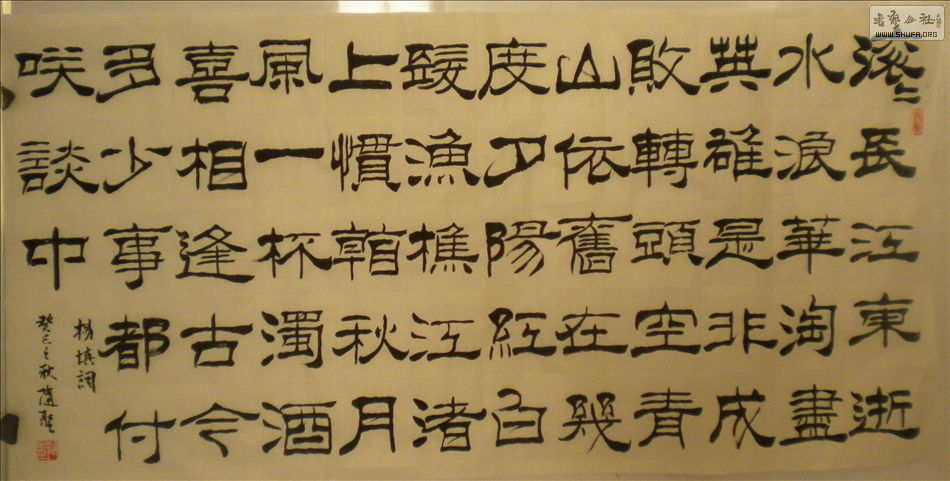 滚〻長江東逝
水浪華淘盡
英雄是非成
敗轉頭空青
山依舊在幾
度夕陽紅白
髮漁樵江渚
上慣看秋月
風一杯濁酒
喜相逢古今
多少事都付
咲談中
杨慎詞
癸巳之秋
書藝公社
WWW.SHUFA.ORG